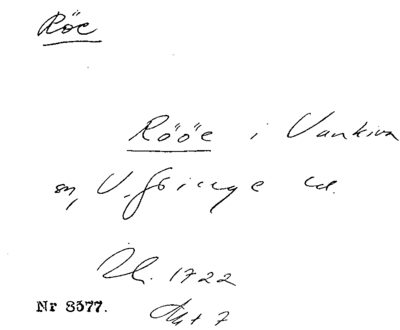 Röe
Rööe i Vankiva
sn, V. Göinge hd.
Jb. 1722
Nr 8577. Akt 7